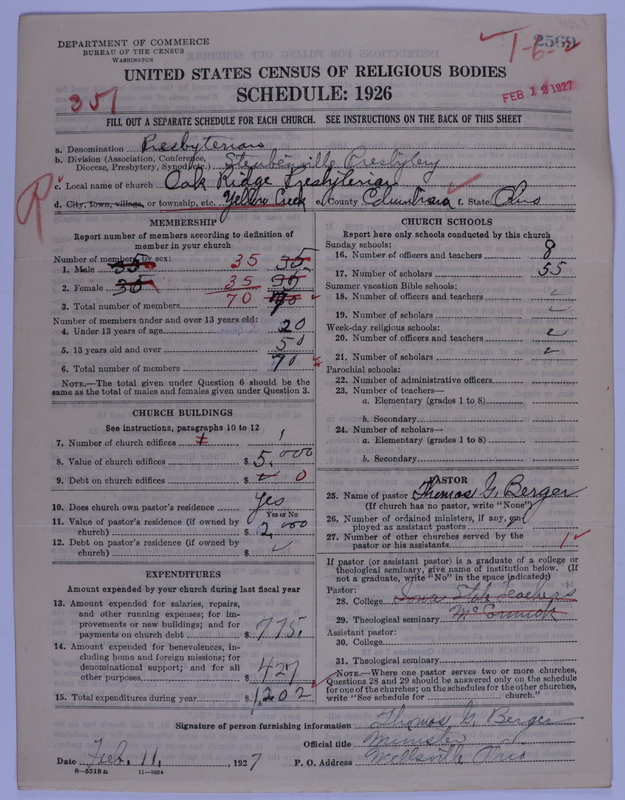 DEPARTMENT OF COMMERCE
BUREAU OF THE CENSUS
WASHINGTON
2569
T-6-2
UNITED STATES CENSUS OF RELIGIOUS BODIES
SCHEDULE: 1926
351
FEB 12 1927
FILL OUT A SEPARATE SCHEDULE FOR EACH CHURCH. SEE INSTRUCTIONS ON THE BACK OF THIS SHEET
a. Denomination Presbyterian
b. Division (Association, Conference,
Diocese, Presbytery, Synod, etc.) Steubenville Presbytery
c. Local name of church Oak Ridge Presbyterian
d. City, town, village, or township, etc. Yellow Creek e. County Columbiana f. State Ohio
R
MEMBERSHIP
Report number of members according to definition of
member in your church
Number of members by sex:
1. Male 35 35 35
2. Female 35 35 35
3. Total number of members 70 70
Number of members under and over 13 years old:
4. Under 13 years of age 20
5. 13 years old and over 50
6. Total number of members 70
NOTE.—The total given under Question 6 should be the
same as the total of males and females given under Question 3.
CHURCH BUILDINGS
See instructions, paragraphs 10 to 12
7. Number of church edifices 1 1
8. Value of church edifices $ 5,000
9. Debt on church edifices $ 0
10. Does church own pastor's residence Yes
Yes or No
11. Value of pastor's residence (if owned by
church) $ 2,000
12. Debt on pastor's residence (if owned by
church) $
EXPENDITURES
Amount expended by your church during last fiscal year
13. Amount expended for salaries, repairs,
and other running expenses; for im-
provements or new buildings; and for
payments on church debt $ 775.
14. Amount expended for benevolences, in-
cluding home and foreign missions; for
denominational support; and for all
other purposes $ 427
15. Total expenditures during year $ 1,202
CHURCH SCHOOLS
Report here only schools conducted by this church
Sunday schools:
16. Number of officers and teachers 8
17. Number of scholars 55
Summer vacation Bible schools:
18. Number of officers and teachers
19. Number of scholars
Week-day religious schools:
20. Number of officers and teachers
21. Number of scholars
Parochial schools:
22. Number of administrative officers
23. Number of teachers—
a. Elementary (grades 1 to 8)
b. Secondary
24. Number of scholars—
a. Elementary (grades 1 to 8)
b. Secondary
PASTOR
25. Name of pastor Thomas G. Berger
(If church has no pastor, write "None")
26. Number of ordained ministers, if any, em-
ployed as assistant pastors
27. Number of other churches served by the
pastor or his assistants 1
If pastor (or assistant pastor) is a graduate of a college or
theological seminary, give name of institution below. (If
not a graduate, write "No" in the space indicated:)
Pastor:
28. College Iowa State Teachers
29. Theological seminary McCormick
Assistant pastor:
30. College
31. Theological seminary
NOTE.—Where one pastor serves two or more churches,
Questions 28 and 29 should be answered only on the schedule
for one of the churches; on the schedules for the other churches,
write "See schedule for church."
Signature of person furnishing information Thomas G. Berger
Official title Minister
Date Feb. 11, 1927 P. O. Address Wellsville Ohio
8—5318a 11—9054